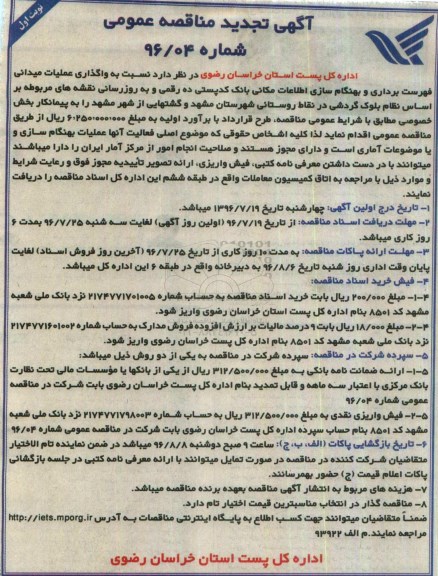 نوبت اول
آگهی تجدید مناقصه عمومی
شماره ۹۶/۰۴
اداره کل پست استان خراسان رضوی در نظر دارد نسبت به واگذاری عملیات میدانی
فهرست برداری و بهنگام سازی اطلاعات مکانی بانک کدپستی ده رقمی و به روزرسانی نقشه های مربوطه بر
اساس نظام بلوک گردشی در نقاط روستائی شهرستان مشهد و گشتهایی از شهر مشهد را به پیمانکار بخش
خصوصی مطابق با شرایط عمومی مناقصه، طرح قرارداد با برآورد اولیه به مبلغ ۶/۲۵۰/۰۰۰/۰۰۰ ریال از طریق
مناقصه عمومی اقدام نماید لذا کلیه اشخاص حقوقی که موضوع اصلی فعالیت آنها عملیات بهنگام سازی و
یا موضوعات آماری است و دارای مجوز هستند و صلاحیت انجام امور از مرکز آمار ایران را دارا میباشند
میتوانند با در دست داشتن معرفی نامه کتبی، فیش واریزی، ارائه تصویر تأییدیه مجوز فوق و رعایت شرایط
و موارد ذیل با مراجعه به اتاق کمیسیون معاملات واقع در طبقه ششم این اداره کل اسناد مناقصه را دریافت
نمایند.
۱- تاریخ درج اولین آگهی: چهارشنبه تاریخ ۱۳۹۶/۷/۱۹ میباشد.
۲- مهلت دریافت اسناد مناقصه: از تاریخ ۹۶/۷/۱۹ (اولین روز آگهی) لغایت سه شنبه ۹۶/۷/۲۵ بمدت ۶
روز کاری میباشد.
۳- مهلت ارائه پاکات مناقصه: به مدت ۱۰ روز کاری از تاریخ ۹۶/۷/۲۵ (آخرین روز فروش اسناد) لغایت
پایان وقت اداری روز شنبه تاریخ ۹۶/۸/۶ به دبیرخانه واقع در طبقه ۶ این اداره کل میباشد.
۴- فیش خرید اسناد مناقصه:
۴-۱- مبلغ ۲۰۰/۰۰۰ ریال بابت خرید اسناد مناقصه به حساب شماره ۲۱۷۴۷۷۱۷۰۱۰۰۵ نزد بانک ملی شعبه
مشهد کد ۸۵۰۱ بنام اداره کل پست استان خراسان رضوی واریز شود.
۴-۲- مبلغ ۱۸/۰۰۰ ریال بابت ۹ درصد مالیات بر ارزش افزوده فروش مدارک به حساب شماره ۲۱۷۴۷۷۱۶۰۱۰۰۲
نزد بانک ملی شعبه مشهد کد ۸۵۰۱ بنام اداره کل پست استان خراسان رضوی واریز شود.
۵- سپرده شرکت در مناقصه: سپرده شرکت در مناقصه به یکی از دو روش ذیل میباشد:
۵-۱- ارائه ضمانت نامه بانکی به مبلغ ۳۱۲/۵۰۰/۰۰۰ ریال از یکی از بانکها یا مؤسسات مالی تحت نظارت
بانک مرکزی با اعتبار سه ماهه و قابل تمدید بنام اداره کل پست خراسان رضوی بابت شرکت در مناقصه
عمومی شماره ۹۶/۰۴
۵-۲- فیش واریزی نقدی به مبلغ ۳۱۲/۵۰۰/۰۰۰ ریال به حساب شماره ۲۱۷۴۷۷۱۷۹۸۰۰۳ نزد بانک ملی شعبه
مشهد کد ۸۵۰۱ بنام حساب سپرده اداره کل پست خراسان رضوی بابت شرکت در مناقصه عمومی شماره ۹۶/۰۴
۶- تاریخ بازگشایی پاکات (الف، ب، ج): ساعت ۹ صبح دوشنبه ۹۶/۸/۸ میباشد در ضمن نماینده تام الاختیار
متقاضیان شرکت کننده در مناقصه در صورت تمایل میتوانند با ارائه معرفی نامه کتبی در جلسه بازگشائی
پاکات اعلام قیمت (ج) حضور بهمرسانند.
۷- هزینه های مربوط به انتشار آگهی مناقصه بعهده برنده مناقصه میباشد.
۸- مناقصه گذار در انتخاب مناسبترین قیمت اختیار تام دارد.
ضمناً متقاضیان میتوانند جهت کسب اطلاع به پایگاه اینترنتی مناقصات به آدرس http://iets.mporg.ir
مراجعه نمایند.م الف ۹۳۹۲۲
اداره کل پست استان خراسان رضوی